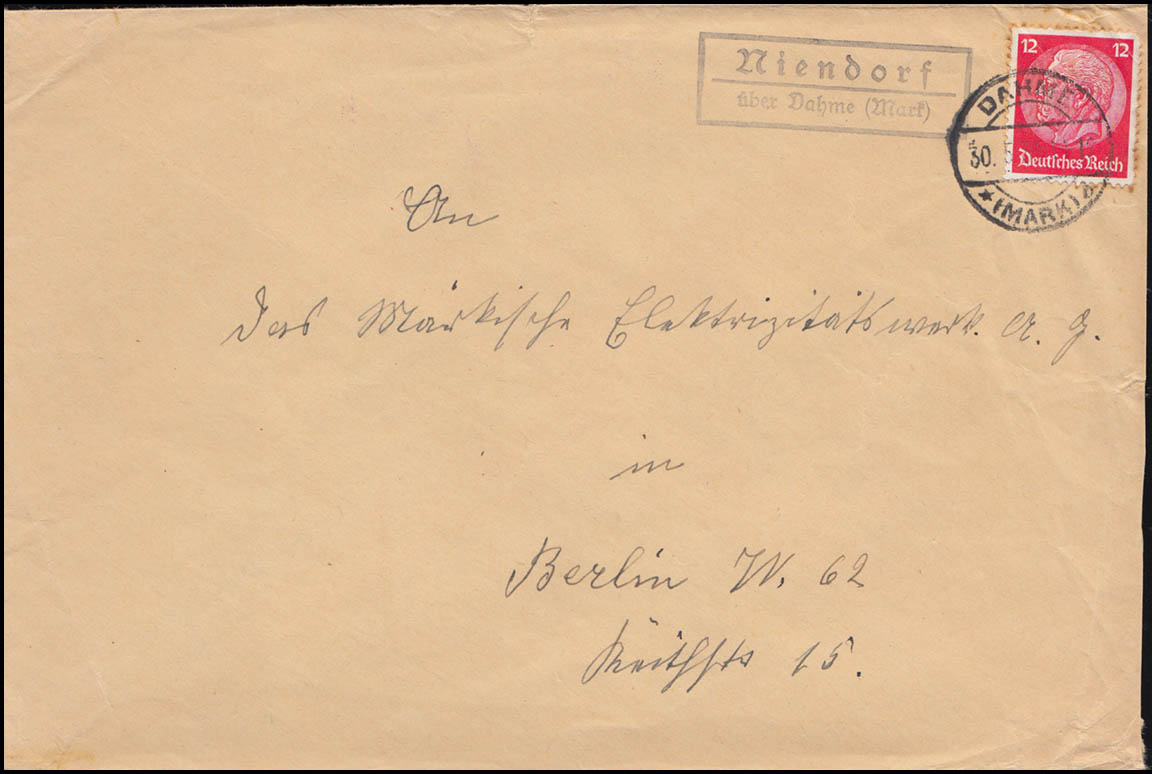 Niendorf
über Dahme (Mark)
12 12
Deutsches Reich
DAHME
30. 5
★ (MARK)
An
das Märkische Elektrizitätswerk. A. G.
in
Berlin W. 62
Keithstr 15.